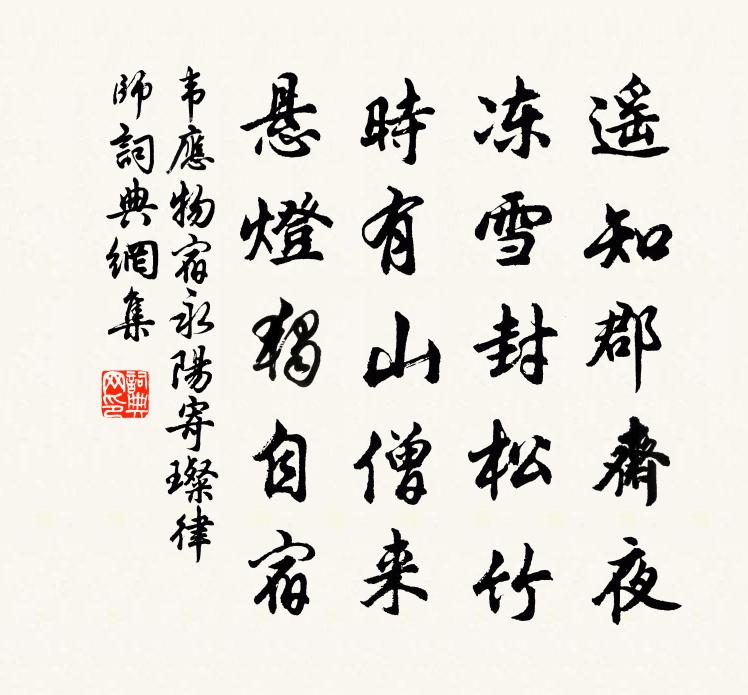 遥知郡齋夜
冻雪封松竹
時有山僧来
悬燈獨自宿
韦應物宿永陽寄璨律
師詞典網集
詞典网印